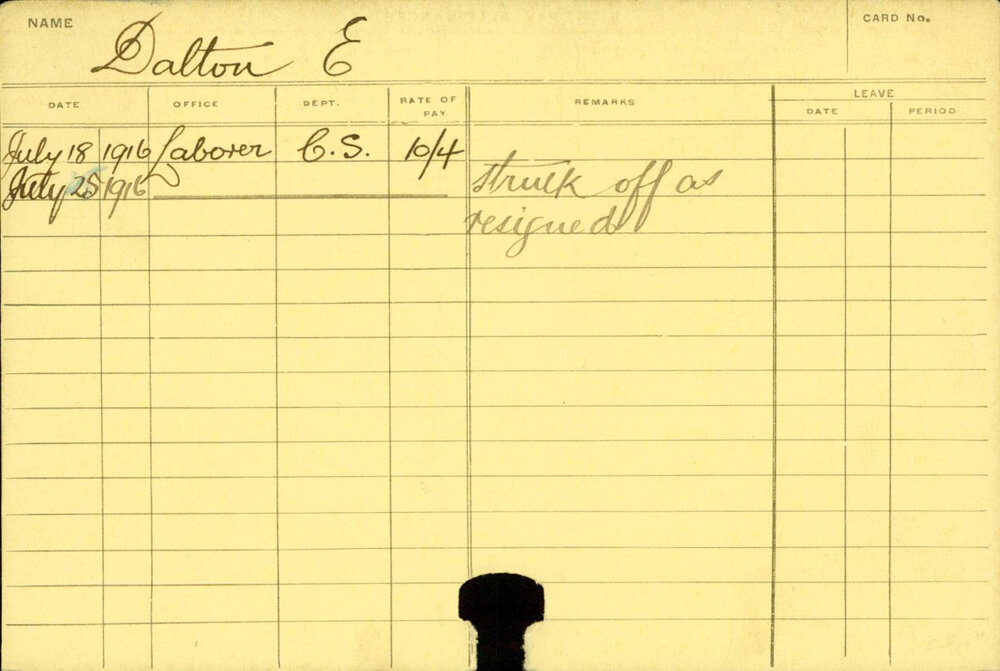 NAME
Dalton E
CARD No.
DATE OFFICE DEPT. RATE OF PAY REMARKS LEAVE
DATE PERIOD
July 18 1916 Laborer C.S. 10/4
July 25 1916 struck off as
resigned